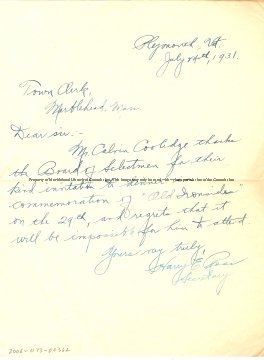 Plymouth, Vt
July 24th, 1931.
Town Clerk,
Marblehead, Mass
Dear sir:-
Mr. Calvin Coolidge thanks
the Board of Selectmen for their
kind invitation to dinner
commemoration of "Old Ironsides"
on the 29th, and regrets that it
will be impossible for him to attend.
Yours very truly,
Harry E. Ross
Secretary